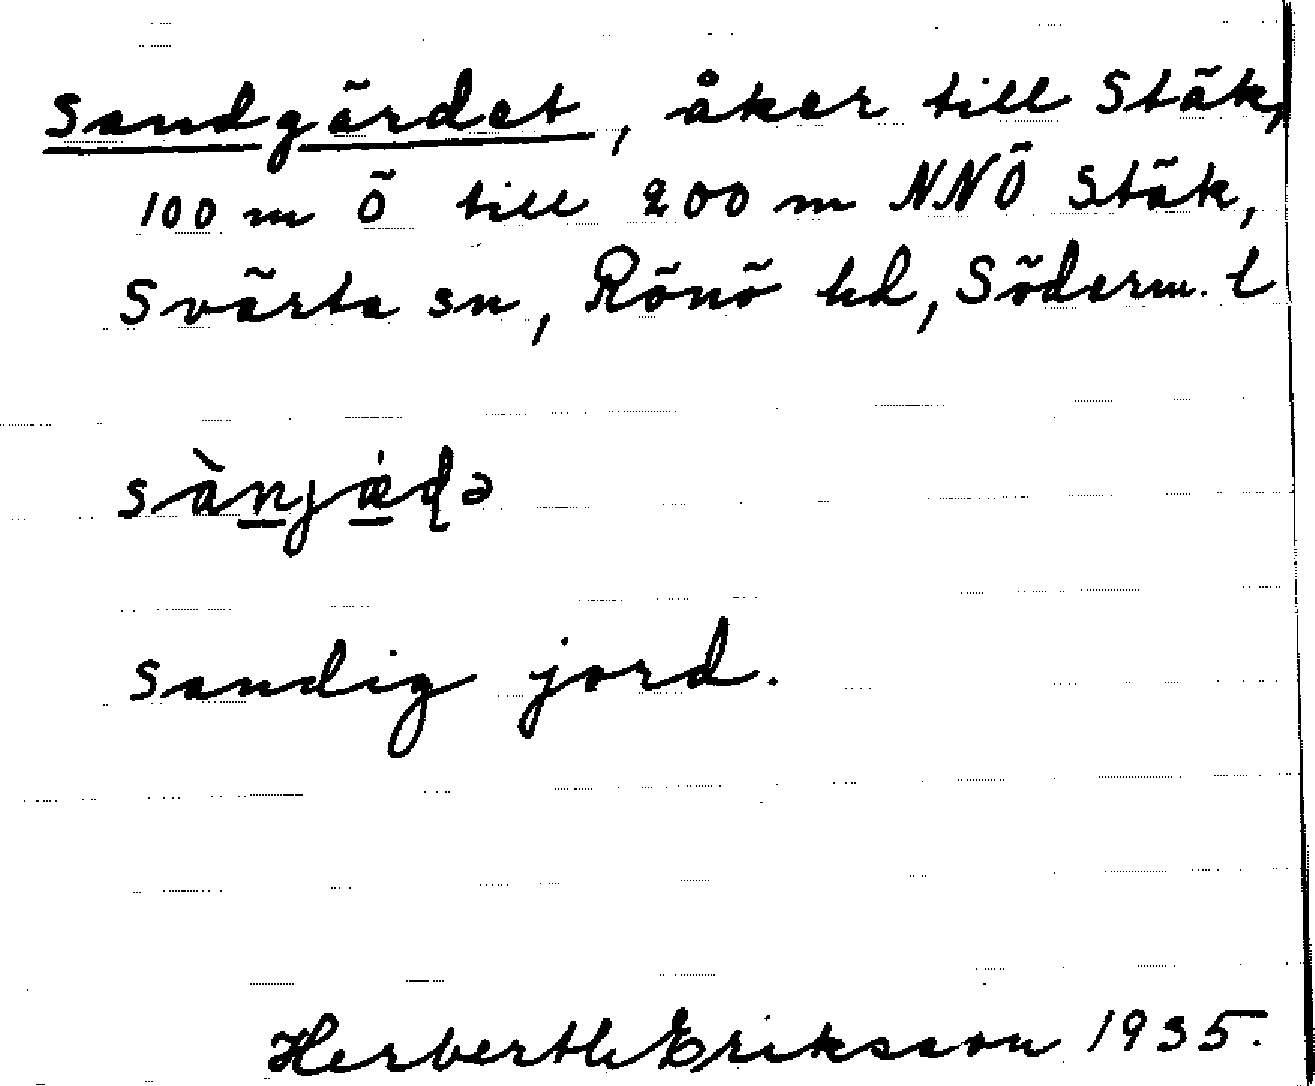 Sandgärdet, åker till Stäk,
100 m Ö till 200 m NNÖ Stäk,
Svärta sn, Rönö hd, Söderm. l
sàn̲jæ̲̇ḍə
sandig jord.
Herberth Eriksson 1935.